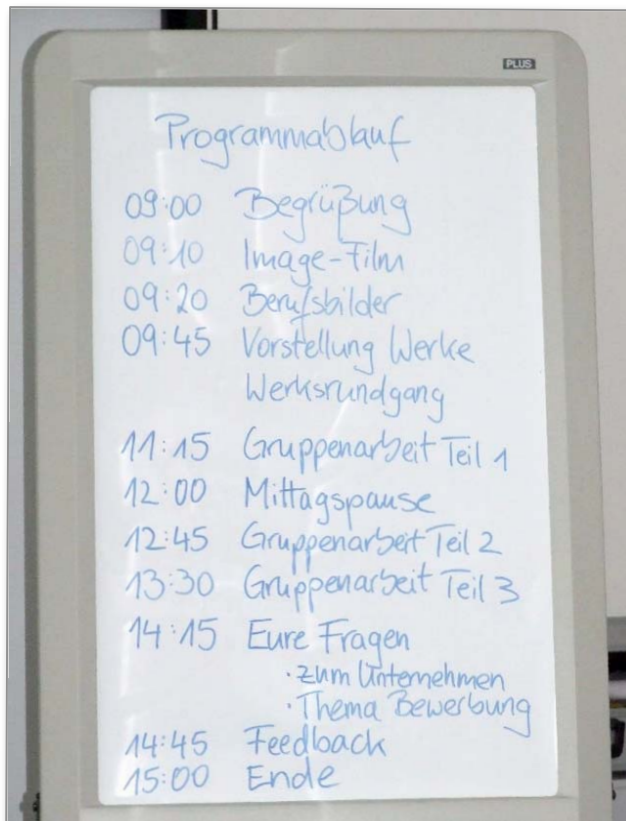 PLUS
Programmablauf
09:00 Begrüßung
09:10 Image-Film
09:20 Berufsbilder
09:45 Vorstellung Werke
Werksrundgang
11:15 Gruppenarbeit Teil 1
12:00 Mittagspause
12:45 Gruppenarbeit Teil 2
13:30 Gruppenarbeit Teil 3
14:15 Eure Fragen
· zum Unternehmen
· Thema Bewerbung
14:45 Feedback
15:00 Ende